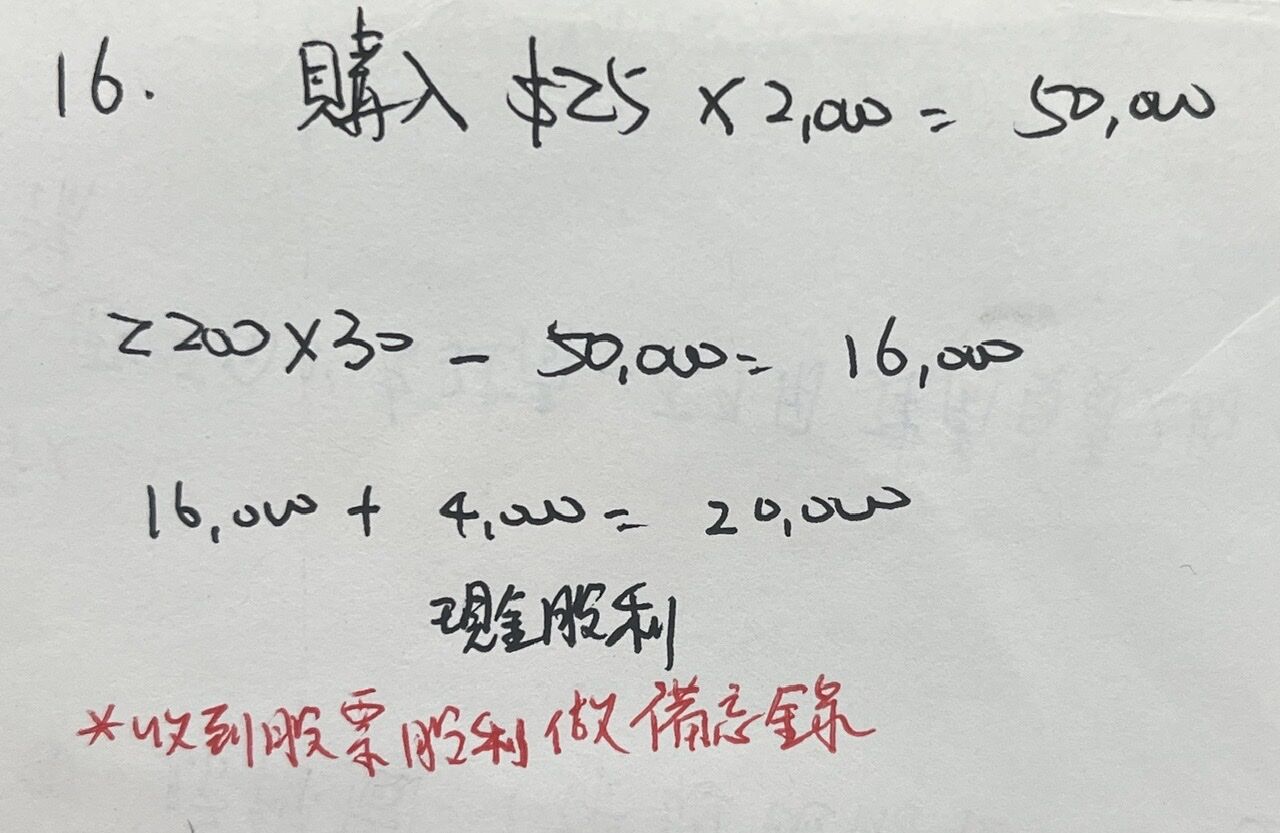 16. 購入 $25 × 2,000 = 50,000
2200×30 - 50,000= 16,000
16,000 + 4,000 = 20,000
現金股利
*收到股票股利做備忘錄